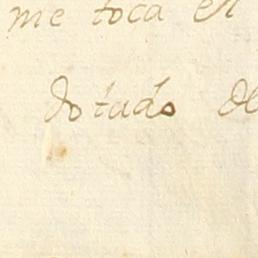 me toca en
dotado de